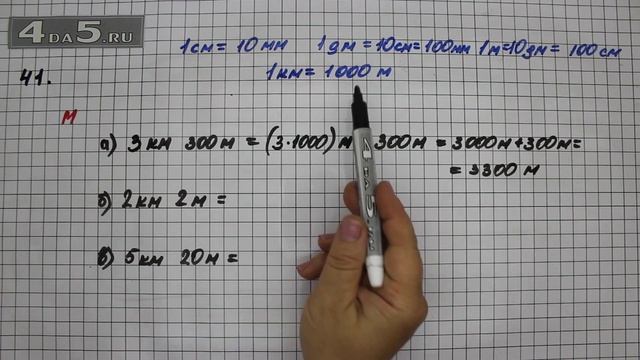 4DA5.RU
1см = 10 мм 1дм = 10см = 100мм 1м = 10дм = 100см
1 км = 1000 м
41.
м
а) 3 км 300м = (3·1000) м 300м = 3000м + 300м =
= 3300 м
б) 2 км 2 м =
в) 5км 20м =